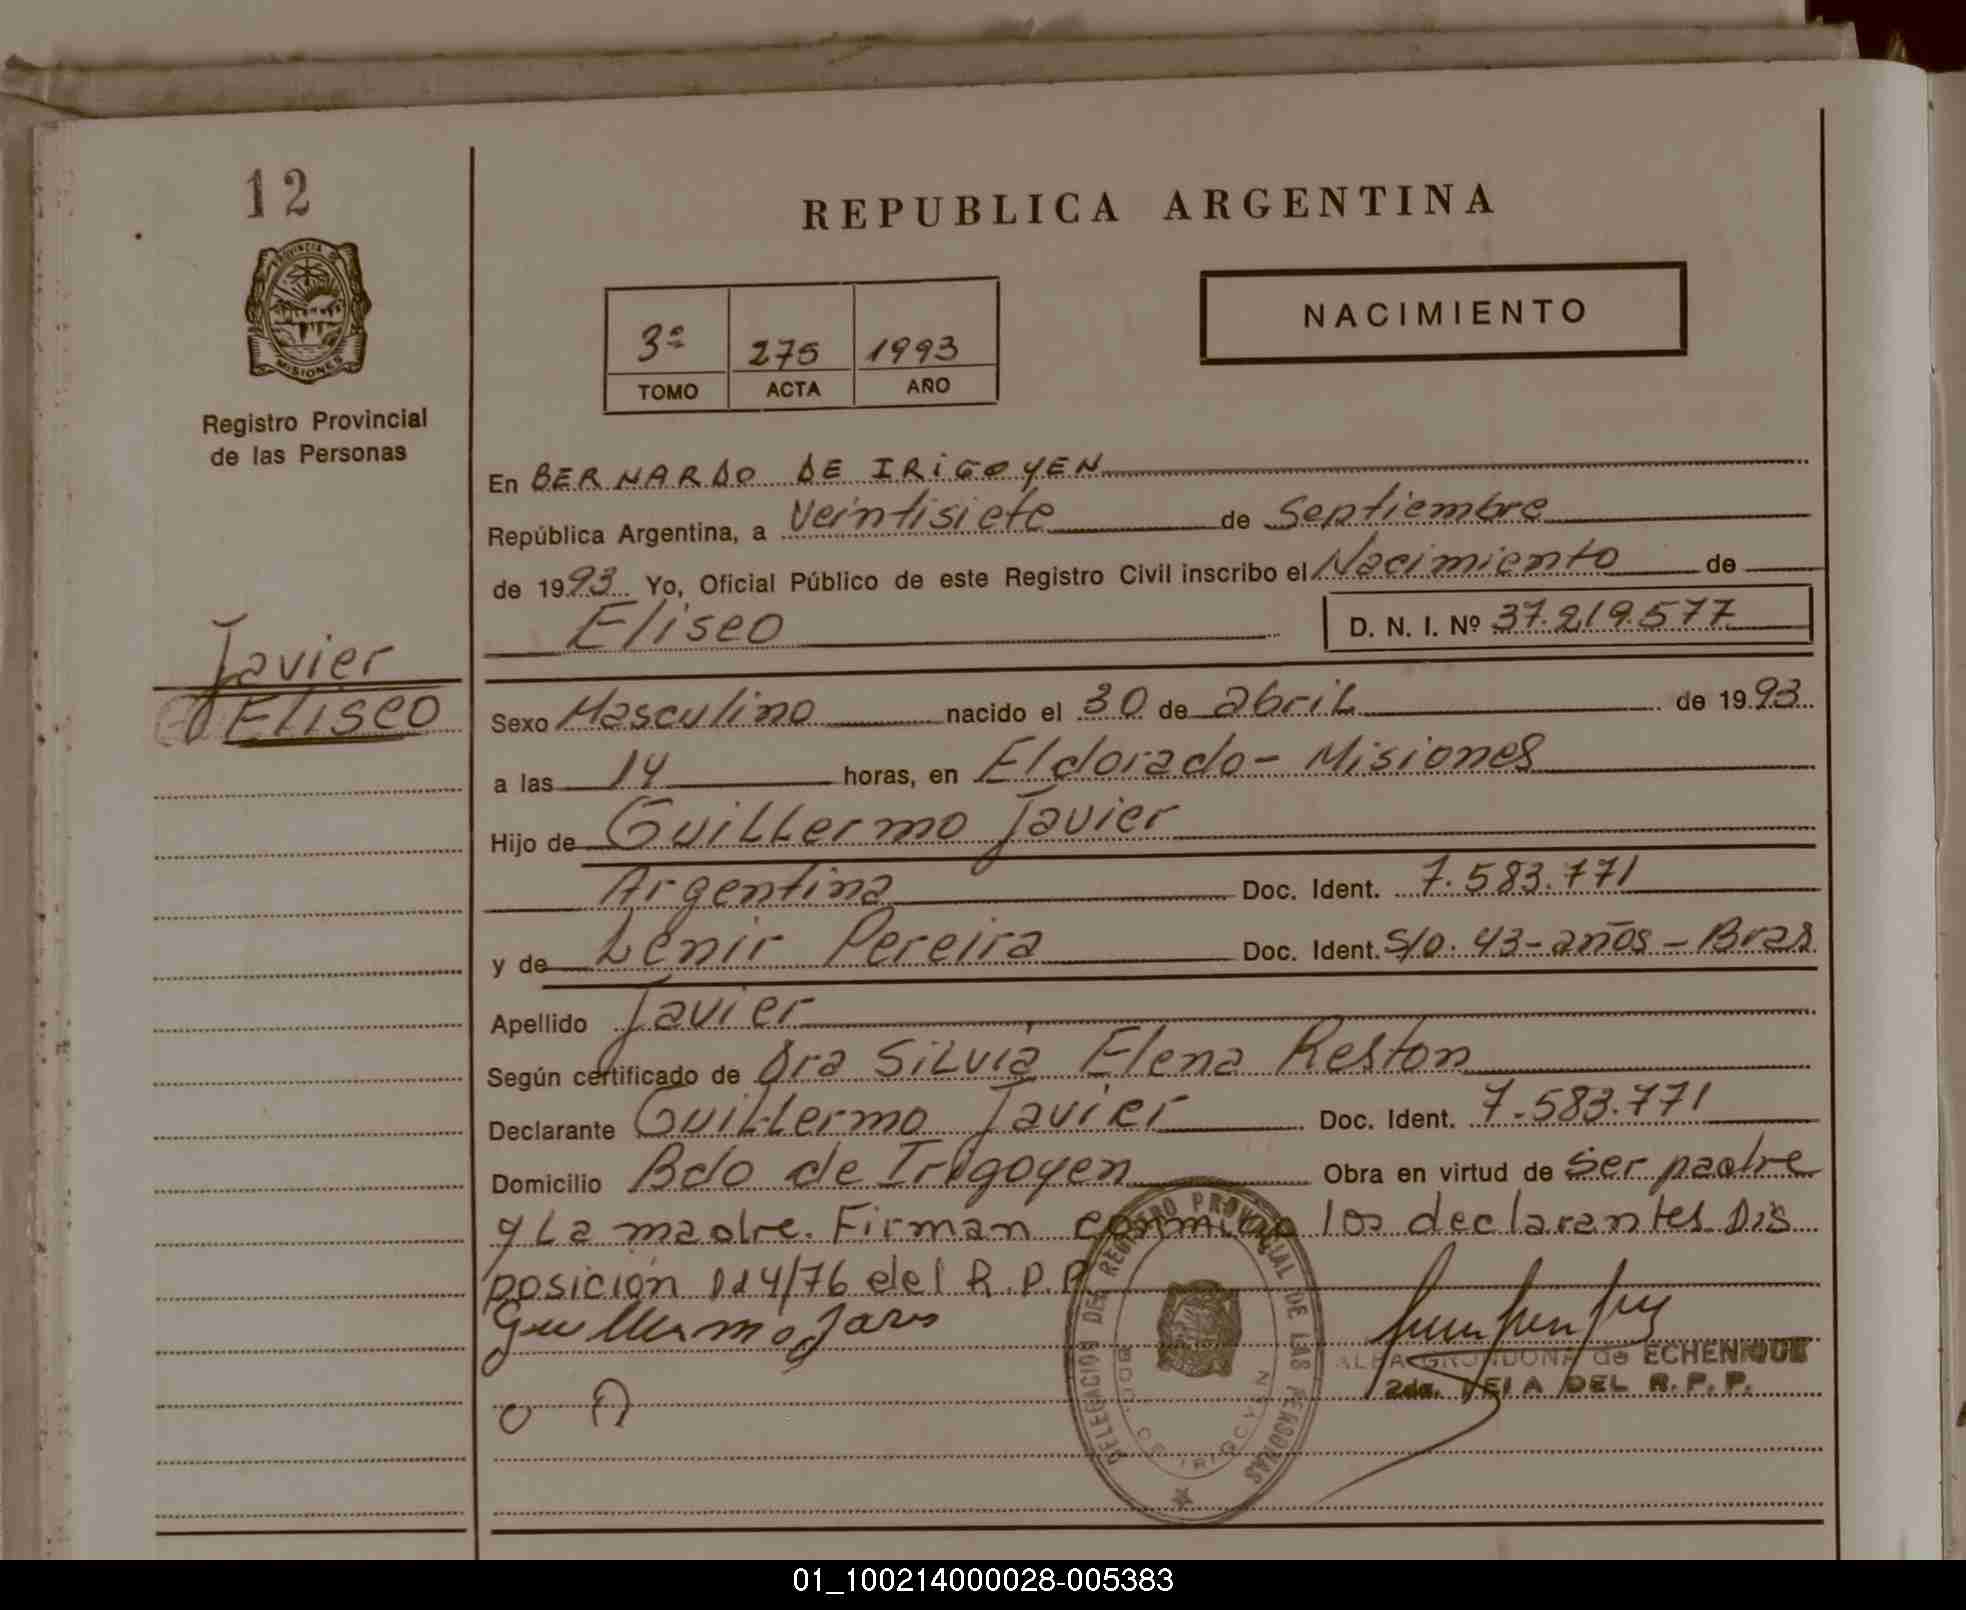 12
REPUBLICA ARGENTINA
PROVINCIA DE
MISIONES
Registro Provincial
de las Personas
3º 275 1993
TOMO ACTA AÑO
NACIMIENTO
En BERNARDO DE IRIGOYEN
República Argentina, a Veintisiete de Septiembre
de 1993 Yo, Oficial Público de este Registro Civil inscribo el Nacimiento de
Eliseo D. N. I. Nº 37.219.577
Javier
Eliseo
Sexo Masculino nacido el 30 de abril de 1993
a las 14 horas, en Eldorado - Misiones
Hijo de Guillermo Javier
Argentina Doc. Ident. 7.583.771
y de Lenir Pereira Doc. Ident. S/D. 43-años - Bras
Apellido Javier
Según certificado de Dra Silvia Elena Reston
Declarante Guillermo Javier Doc. Ident. 7.583.771
Domicilio Bdo de Irigoyen Obra en virtud de ser padre
y La madre. Firman conmigo los declarantes Dis
posición 114/76 del R.P.P.
Guillermo Javi
DELEGACION DEL REGISTRO PROVINCIAL DE LAS PERSONAS
BDO. DE IRIGOYEN
ALBA GRONDONA de ECHENIQUE
2da. JEFA DEL R.P.P.
01_100214000028-005383